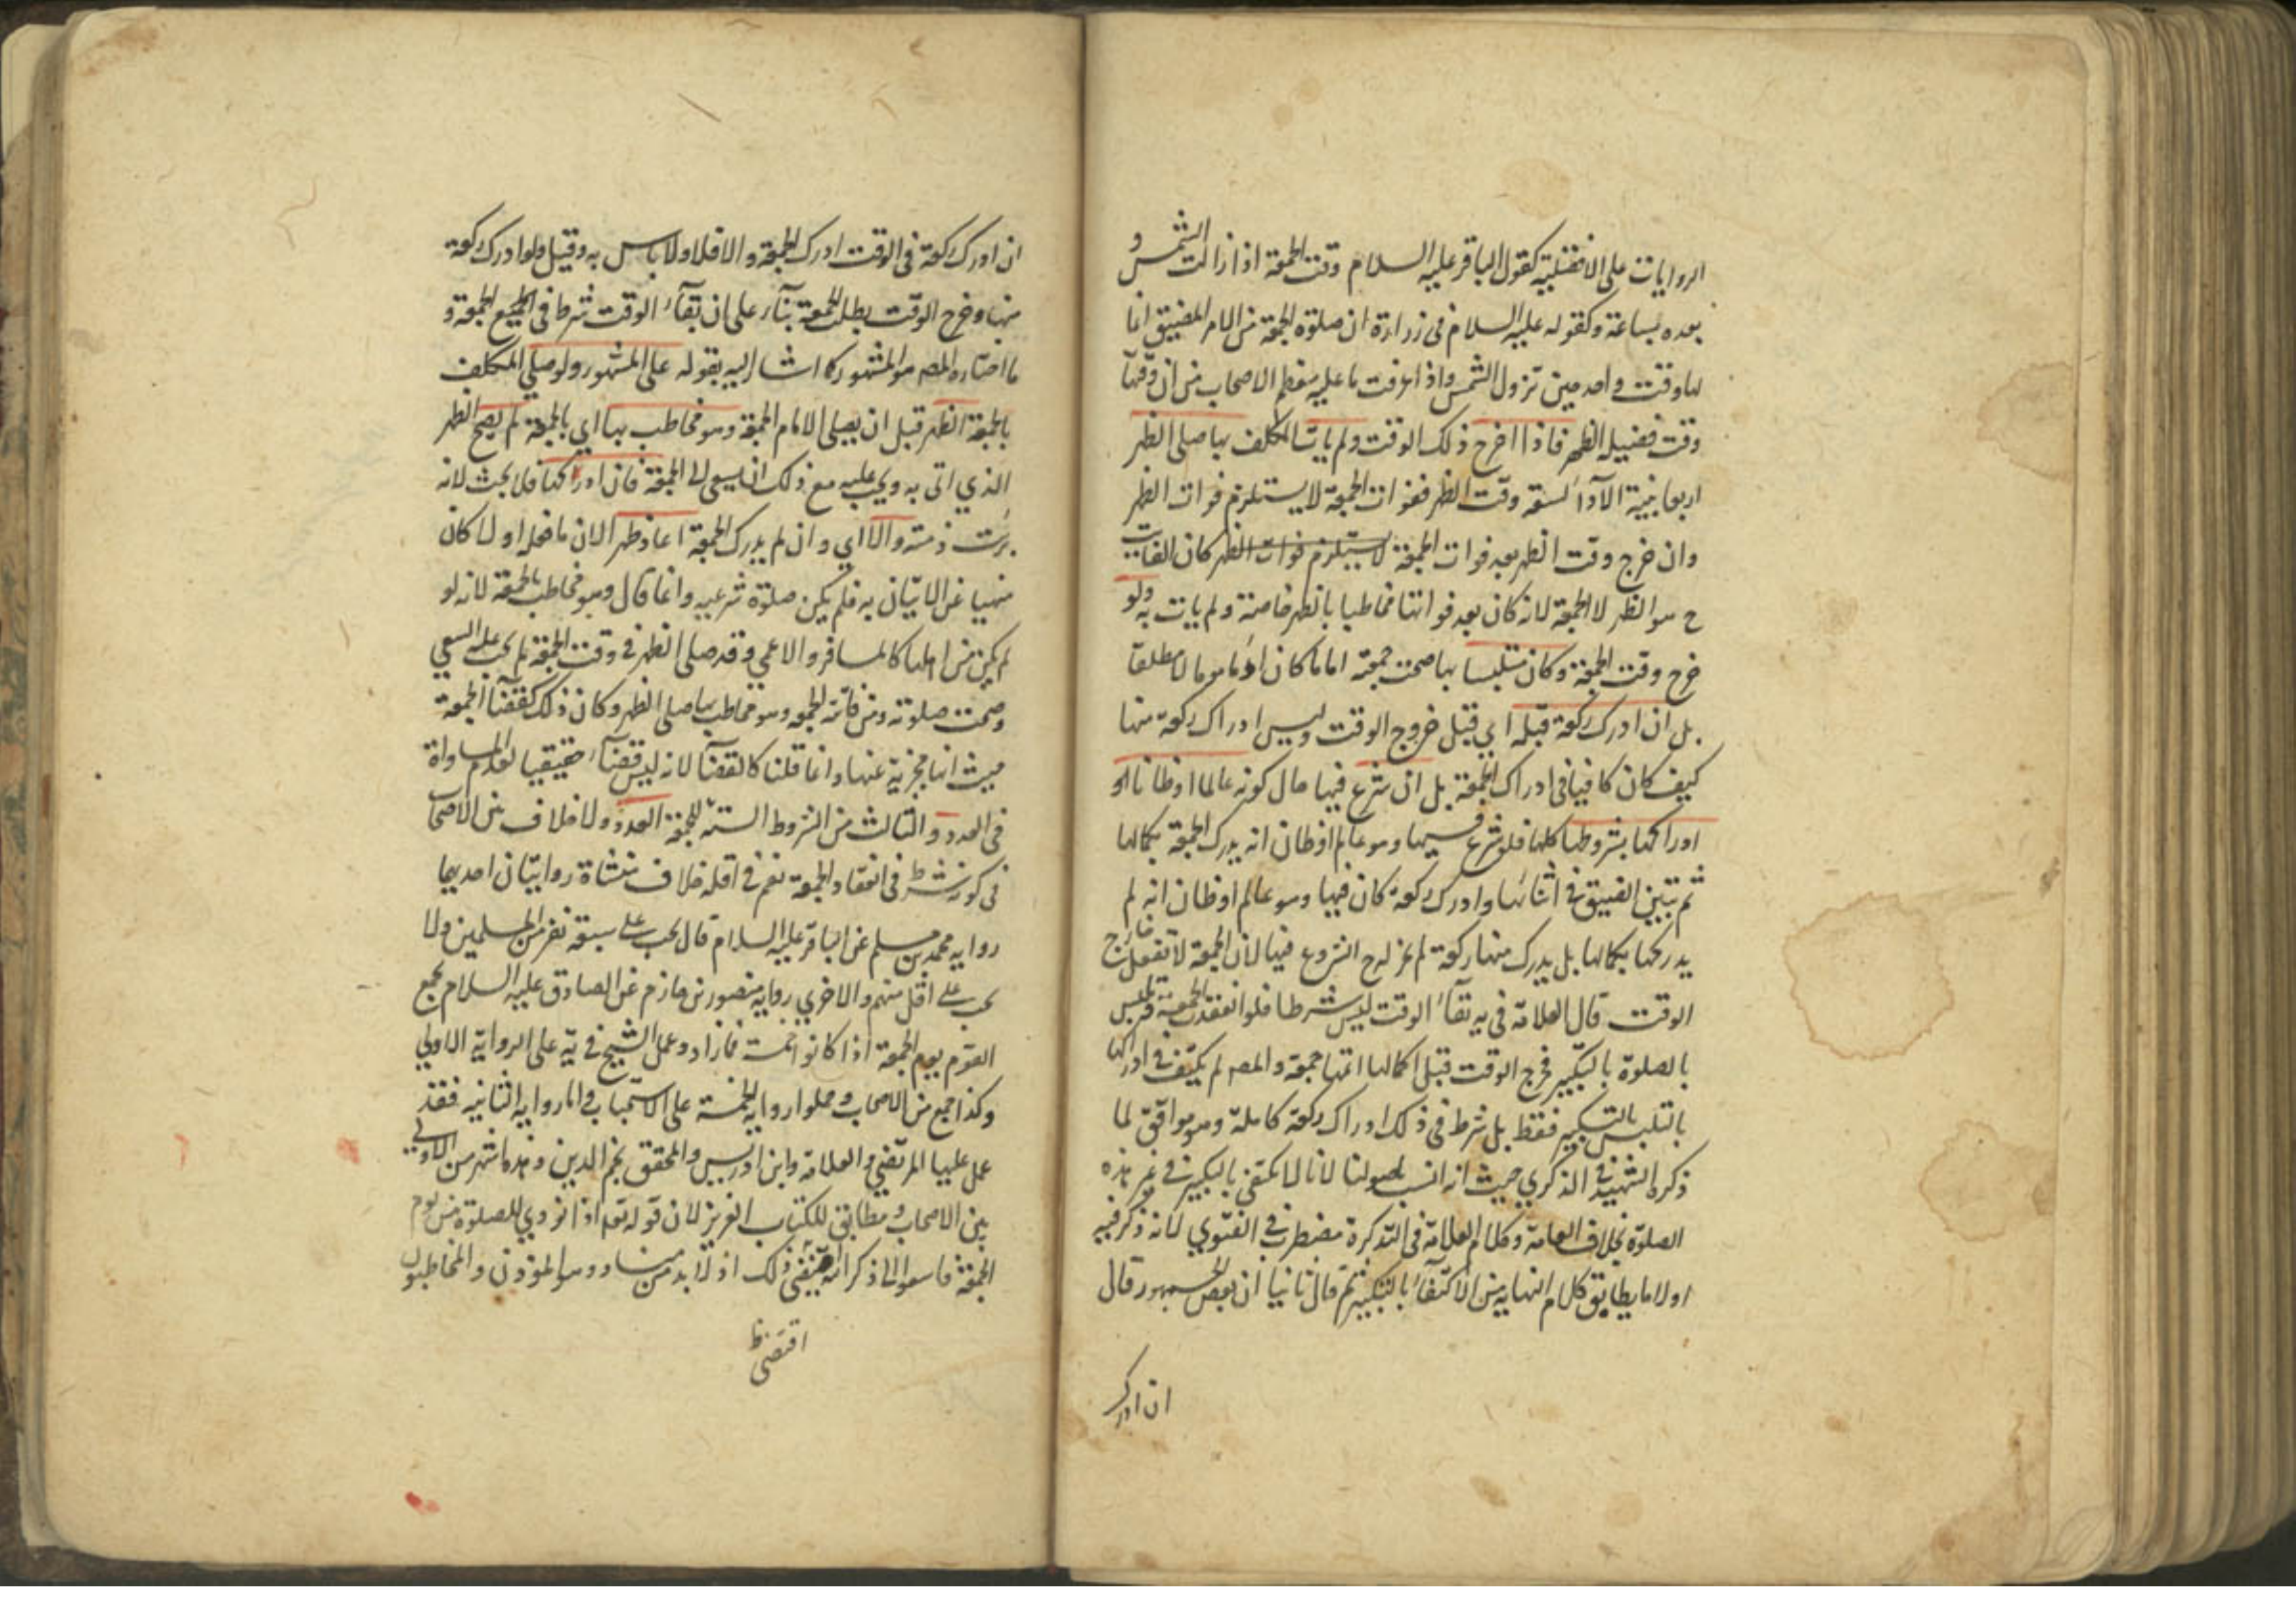 الروايات على الافضلية كقول الباقر عليه السلام وقت الجمعة اذا زالت الشمس و
بعده بساعة وكقوله عليه السلام في زرارة ان صلوة الجمعة من الامر المضيق انما
لها وقت واحد حين تزول الشمس واذا عرفت ما عليه معظم الاصحاب من ان وقتها
وقت فضيلة الظهر فاذا اخرج ذلك الوقت ولم يات المكلف بها صلى الظهر
اربعا بنية الآداء لسعة وقت الظهر ففوات الجمعة لا يستلزم فوات الظهر
وان خرج وقت الظهر بعد فوات الجمعة لا يستلزم فوات الظهر كان الفايت
ح هو الظهر لا الجمعة لانه كان بعد فواتها مخاطبا بالظهر خاصة ولم يات به ولو
خرج وقت الجمعة وكان متلبسا بها صحت جمعة اماما كان او ماموما لا مطلقا
بل ان ادرك ركعة قبله اي قبل خروج الوقت وليس ادراك ركعة منها
كيف كان كافيا في ادراك الجمعة بل ان شرع فيها حال كونه عالما او ظانا او
ادراكها بشروطها كلها فلو شرع فيها وهو عالم او ظان انه يدرك الجمعة بكمالها
ثم تبين الضيق في اثنائها وادرك ركعة كان فيها وهو عالم او ظان انه لم
يدركها بكمالها بل يدرك منها ركعة لم يجز له ح الشروع فيها لان الجمعة لا تفعل خارج
الوقت قال العلامة في يه بقآء الوقت ليس شرطا فلو انعقدت الجمعة وتلبس
بالصلوة بالتكبير فخرج الوقت قبل اكمالها اتمها جمعة والمصه لم يكتف في ادراكها
بالتلبس بالتكبير فقط بل شرط في ذلك ادراك ركعة كاملة وهو موافق لما
ذكره الشهيد في الذكري حيث انه انسب باصولنا لانا لا نكتفي بالتكبير في غير هذه
الصلوة بخلاف العامة وكلام العلامة في التذكرة مضطرب في الفتوي لانه ذكر فيه
اولا ما يطابق كلام النهاية من الاكتفآء بالتكبير ثم قال ثانيا ان بعض الجمهور قال
ان ادرك
ان ادرك ركعة في الوقت ادرك الجمعة والا فلا ولا باس به وقيل ولو ادرك ركعة
منها وخرج الوقت بطلت الجمعة بنآء على ان بقآء الوقت شرط في الجميع الجمعة و
ما اختاره المصه هو المشهور كما اشار اليه بقوله على المشهور ولو صلي المكلف
بالجمعة الظهر قبل ان يصلي الامام الجمعة وهو مخاطب بها اي بالجمعة لم يصح الظهر
الذي اتى به ويجب عليه مع ذلك ان يسعى الى الجمعة فان ادركها فلا بحث لانه
برئت ذمته والا اي وان لم يدرك الجمعة اعاد ظهرا لان ما فعله اولا كان
منهيا عن الاتيان به فلم يكن صلوة شرعية وانما قال وهو مخاطب بالجمعة لانه لو
لم يكن من اهلها كالمسافر والاعمي وقد صلى الظهر في وقت الجمعة لم يجب عليه السعي
وصحت صلوته ومن فاتته الجمعة وهو مخاطب بها صلى الظهر وكان ذلك كقضآء الجمعة
حيث انها مجزية عنها وانما قلنا كالقضآء لانه ليس قضآء حقيقيا لعدم المساواة
في العدد والثالث من الشروط الستة للجمعة العدد ولا خلاف بين الاصحاب
في كونه شرط في انعقاد الجمعة نعم في اقله خلاف منشاة روايتان احديهما
رواية محمد بن مسلم عن الباقر عليه السلام قال يجب على سبعة نفر من المسلمين ولا
يجب على اقل منهم والاخري رواية منصور بن حازم عن الصادق عليه السلام يجمع
القوم يوم الجمعة اذا كانوا خمسة فما زاد وعمل الشيخ في يه على الرواية الاولي
وكذا جمع من الاصحاب وحملوا رواية الخمسة على الاستحباب واما رواية الثانية فقد
عمل عليها المرتضي والعلامة وابن ادريس والمحقق نجم الدين وهذه اشهر من الاولي
بين الاصحاب ومطابق للكتاب العزيز لان قوله تعه اذا نودي للصلوة من يوم
الجمعة فاسعوا الى ذكر الله يقتضي ذلك اذ لا بد من مناد وهو المؤذن والمخاطبون
اقتضي ظ